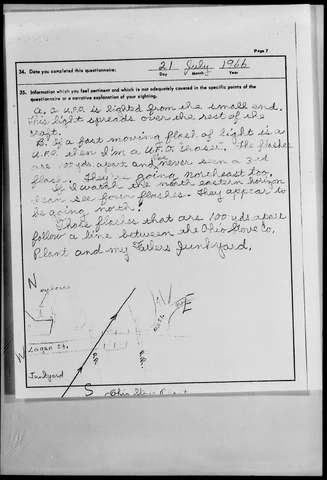 Page 7
34. Date you completed this questionnaire: 21 July 1966
Day Month Year
35. Information which you feel pertinent and which is not adequately covered in the specific points of the
questionnaire or a narrative explanation of your sighting.
A. a U.F.O. is lighted from the small end.
This light spreads over the rest of the
craft.
B. if a fast moving flash of light is a
U.F.O. then I'm a U.F.O. chaser. The flashes
are 100 yds. apart and I've never seen a 3rd
flash. They're going northeast too.
If I watch the north eastern horizon
I can see four flashes. They appear to
be going north.
Those flashes that are 100 yds. apart
follow a line between the Ohio Stove Co.
Plant and my Fathers Junkyard.
N
my house
E
W
Logan St.
R.R.
R.R.
Junkyard
S
Ohio Stove Plant